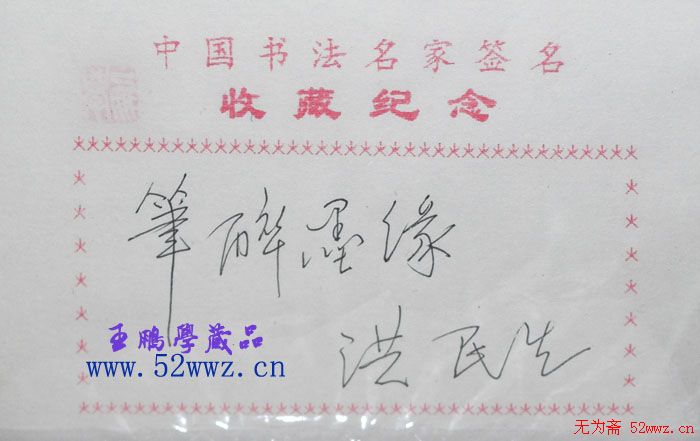 中国书法名家签名
收藏纪念
筆醉墨缘
洪民生
王鹏學蔵品
www.52wwz.cn
无为斋 52wwz.cn